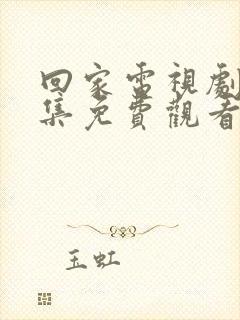 回家電視劇
集免費觀看
玉虹